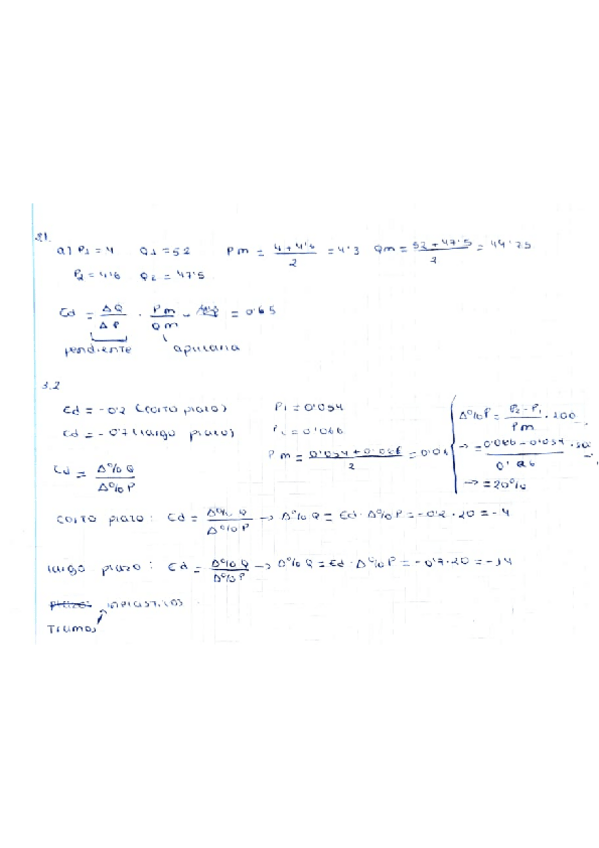 21.
a) P1 = 4 Q1 = 52 Pm = (4 + 4'6)/2 = 4'3 Qm = (52 + 47'5)/2 = 44'75
P2 = 4'6 Q2 = 47'5
Ed = ΔQ/ΔP · Pm/Qm = 0'65
pendiente
3.2
Ed = -0'2 (corto plazo) P1 = 0'054
Ed = -0'7 (largo plazo) P2 = 0'066
Pm = (0'054 + 0'066)/2 = 0'06
Δ%P = (P2 - P1)/Pm · 100
→ = (0'066 - 0'054)/0'06
→ = 20%
Ed = Δ%Q/Δ%P
corto plazo: Ed = Δ%Q/Δ%P → Δ%Q = Ed · Δ%P = -0'2 · 20 = -4
largo plazo: Ed = Δ%Q/Δ%P → Δ%Q = Ed · Δ%P = -0'7 · 20 = -14
inelásticos
Tramos